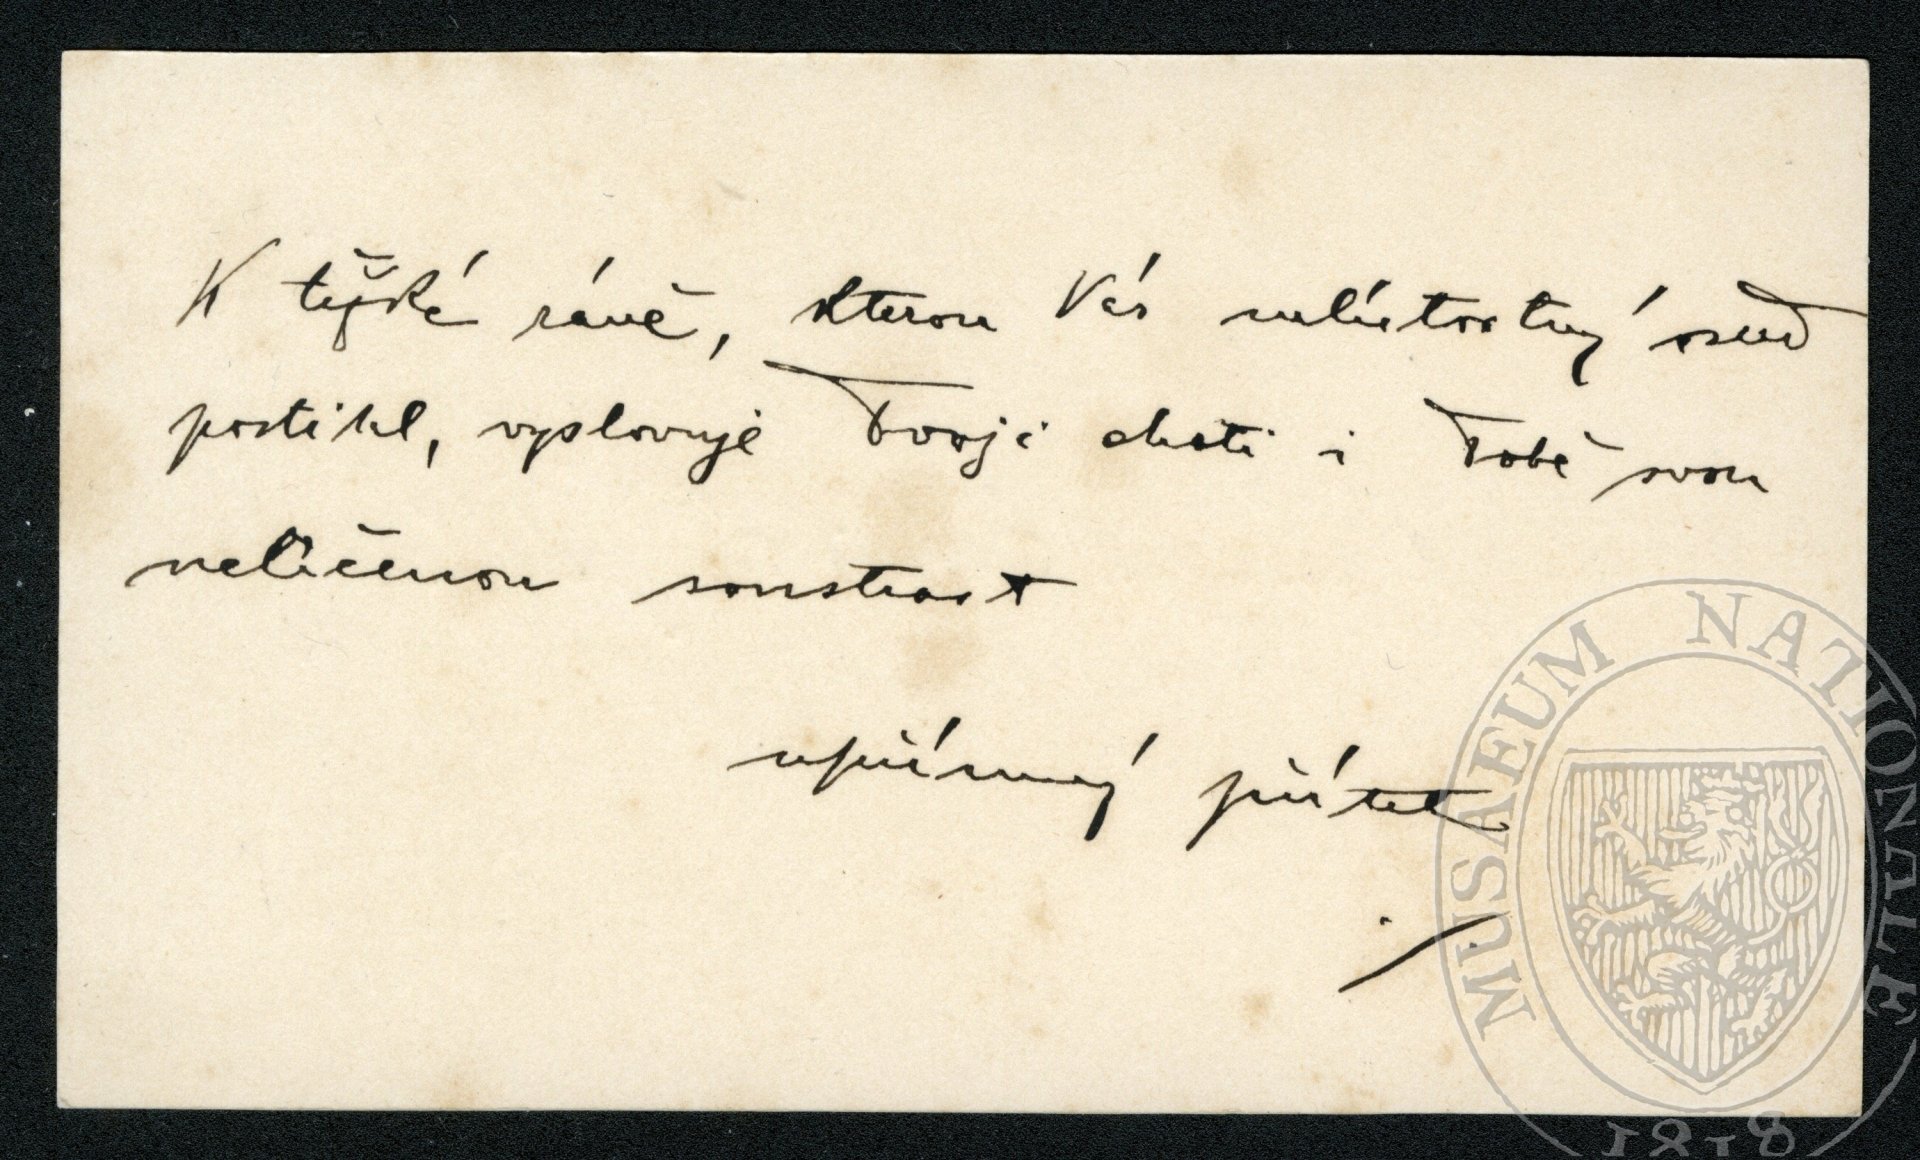 K těžké ráně, kterou Vás nelítostný osud
postihl, vyslovuje Tvoji choti i Tobě svou
nelíčenou soustrast
upřímný přítel
MUSAEUM NATIONALE
1818